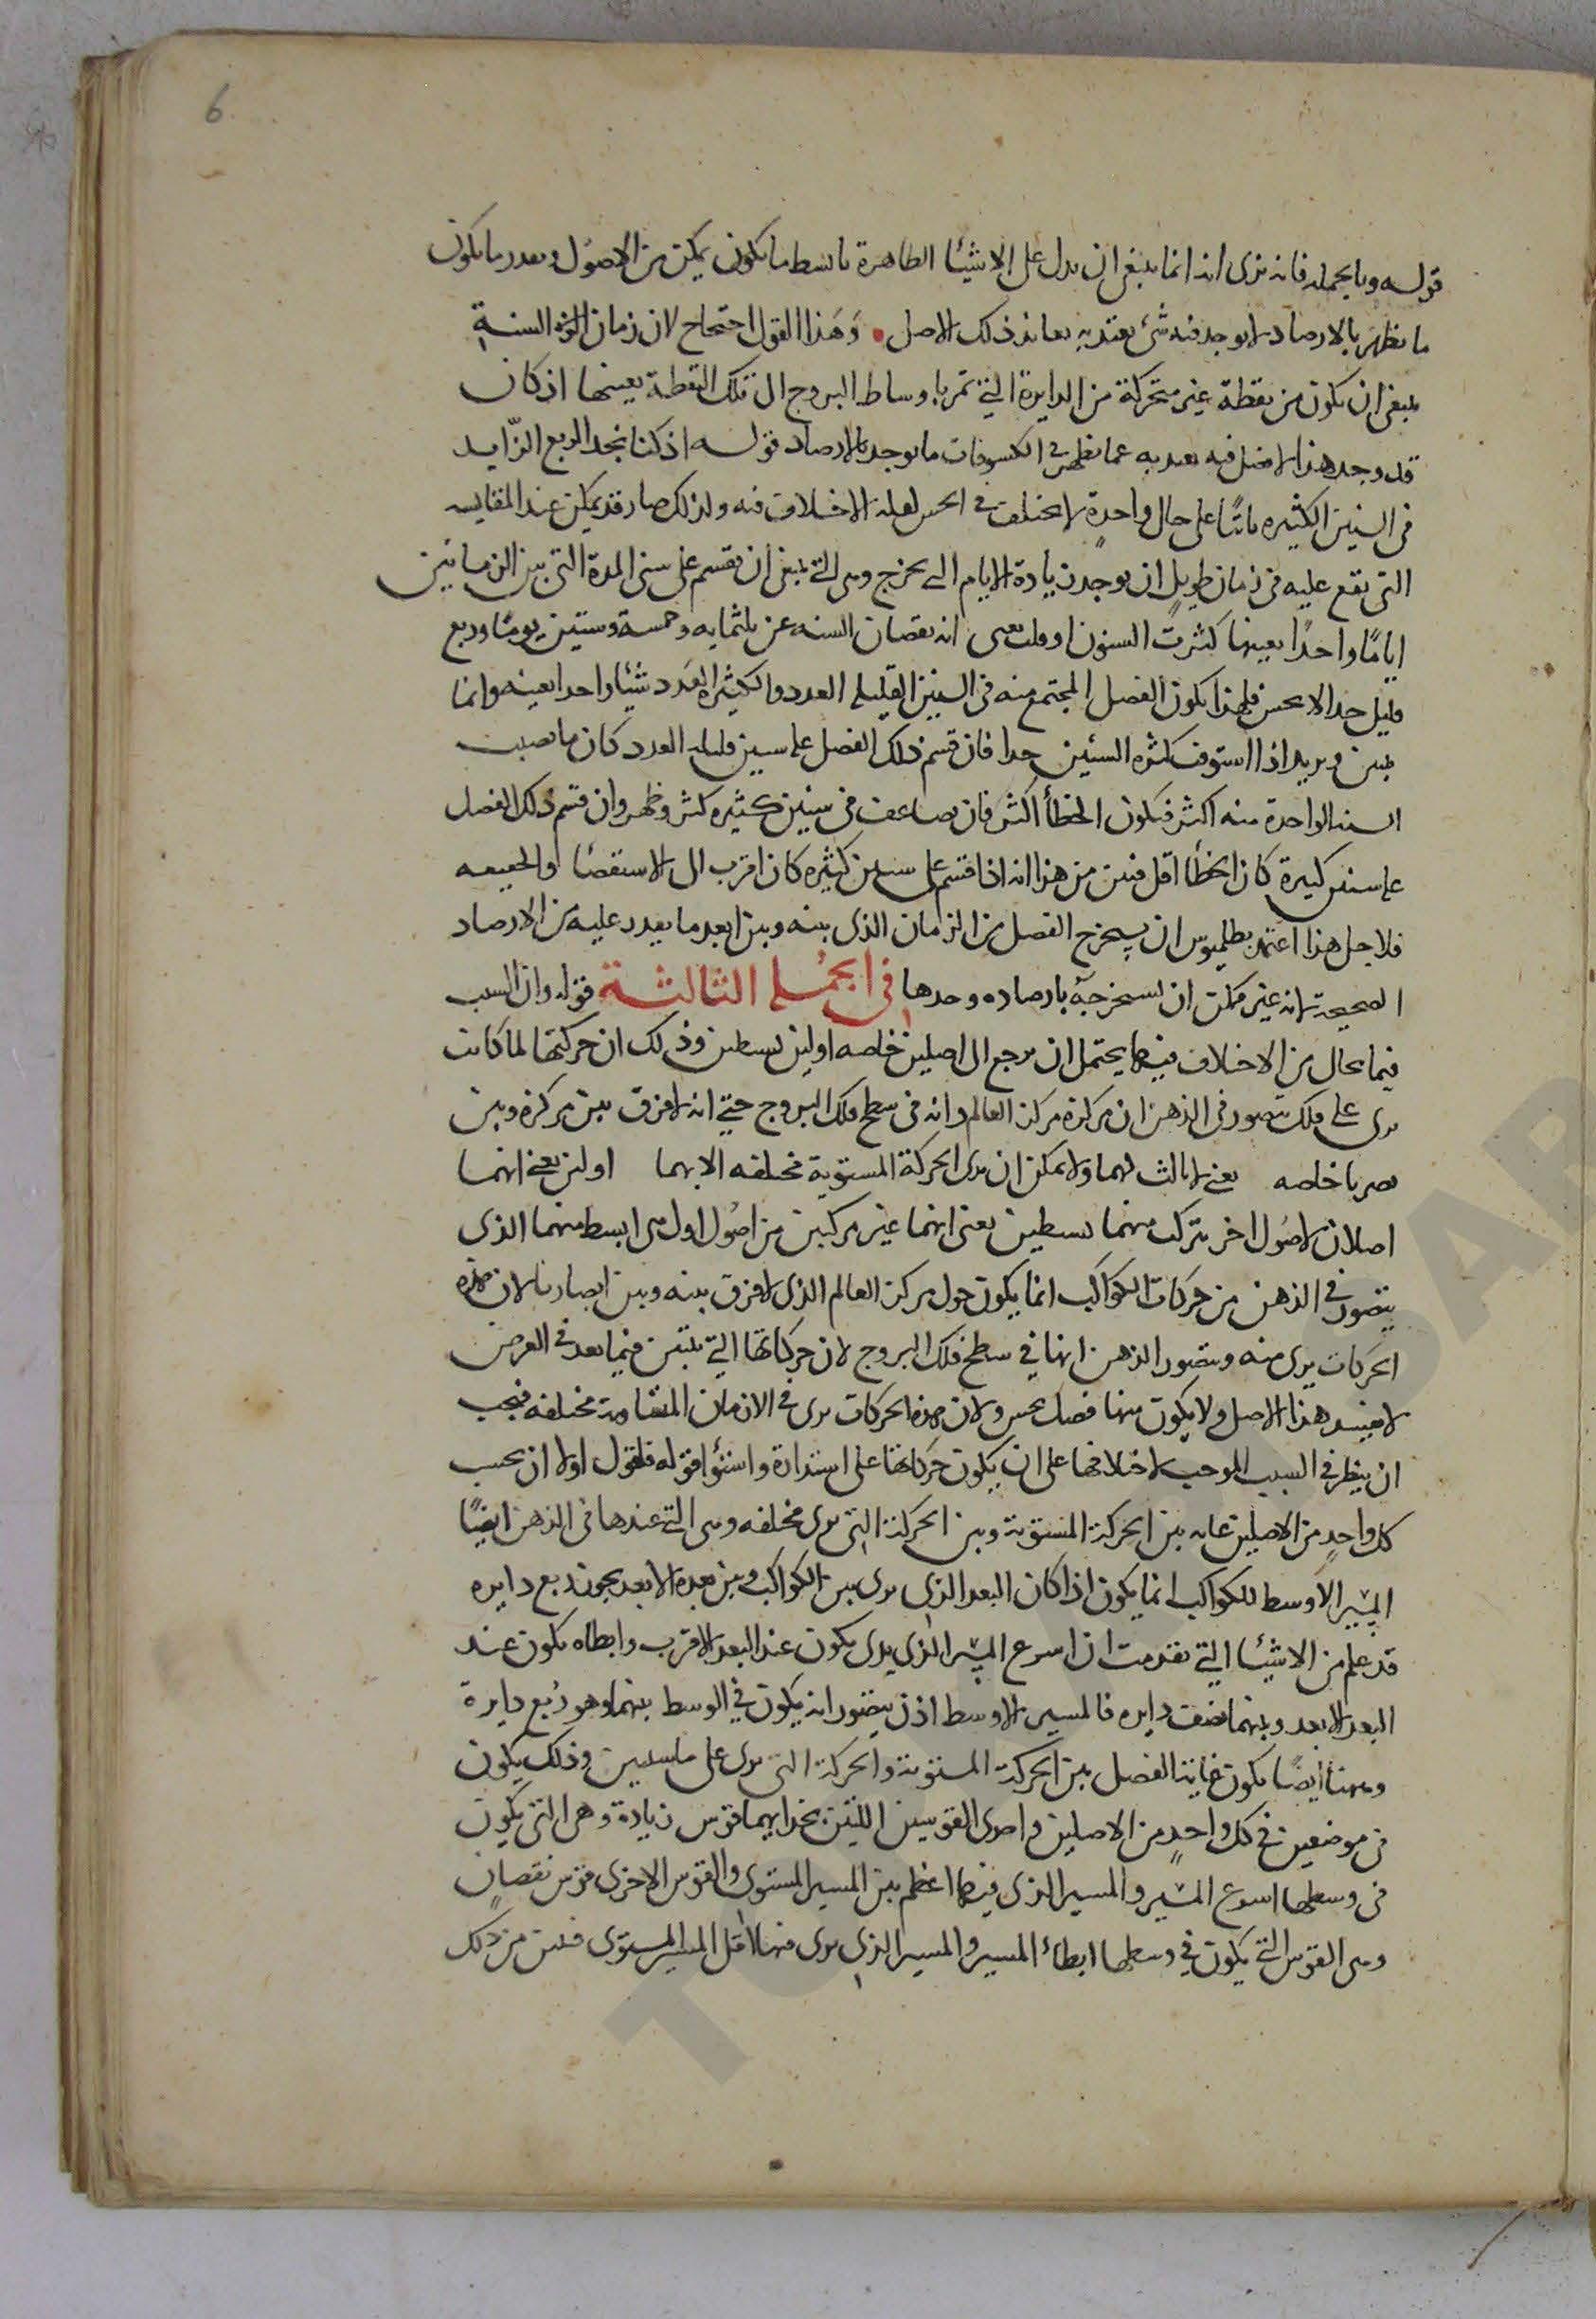 6
قوله وبالجملة فانه نرى انه انما ينبغي ان يدل على الاشيا الظاهرة بابسط ما يكون يمكن من الاصول وبقدر ما يكون
ما يظهر بالارصاد لا يوجد فيه شئ يعتد به يعاند ذلك الاصل وهذا القول احتجاج لان زمان السنة
ينبغي ان يكون من نقطة غير متحركة من الدايرة التي تمر باوساط البروج الى تلك النقطة بعينها اذ كان
قد وجد هذا الاصل فيه يعتد به عما يظهر في الكسوفات ما يوجد بالارصاد قوله اذ كنا نجد الربع الزايد
في السنين الكثيره ثابتا على حال واحدة لا يختلف في الحس لقلة الاختلاف فيه ولذلك صار قد يمكن عند المقايسه
التي تقع عليه في زمان طويل ان يوجد زيادة الايام التي يخرج وهي التي ينبغي ان تقسم على سني المدة التي بين الزمانين
اياما واحدا بعينها كثرت السنون او قلت يعني ان نقصان السنه عن ثلثمايه وخمسة وستين يوما وربع
قليل جدا لا يحس فلهذا يكون الفضل المجتمع منه في السنين القليله العدد والكثيرة العدد شيئا واحدا بعينه وانما
يبين ويزيد اذا استوفت كثره السنين جدا فان قسم ذلك الفضل على سنين قليله العدد كان ما يصيب
السنه الواحدة منه اكثر فيكون الخطأ اكثر فان تضاعف في سنين كثيره كثر وظهر وان قسم ذلك الفضل
على سنين كثيرة كان الخطأ اقل فبين من هذا انه اذا قسم على سنين كثيره كان اقرب الى الاستقصا والحقيقه
فلاجل هذا اعتمد بطلميوس ان يستخرج الفضل من الزمان الذي بينه وبين ابعد ما يقدر عليه من الارصاد
الصحيحة لانه غير ممكن ان يستخرجه بارصاده وحدها في الجملة الثالثة قوله وان السبب
فيما يخال من الاختلاف فيها يحتمل ان يرجع الى اصلين خاصه اولين بسيطين وذلك ان حركتها لما كانت
ترى على فلك يتصور في الذهن ان مركزه مركز العالم وانه في سطح فلك البروج حتى انه لا فرق بين مركزه وبين
بصرنا خاصه يعني لا ثالث لهما ولا يمكن ان يرى الحركة المستوية مختلفه الا بهما اولين يعني انهما
اصلان لاصول اخر يتركب منهما بسيطين يعني انهما غير مركبين من اصول اول هي ابسط منهما الذي
يتصور في الذهن من حركات الكواكب انما يكون حول مركز العالم الذي لا فرق بينه وبين ابصارنا لان هذه
الحركات يرى منه ويتصور الذهن انها في سطح فلك البروج لان حركاتها التي يتبين فيما بعد في العرض
لا يفسد هذا الاصل ولا يكون منها فضل يحس ولان هذه الحركات يرى في الازمان المتساوية مختلفه فيجب
ان ينظر في السبب الموجب لاختلافها على ان يكون حركاتها على استدارة واستواء قوله فلنقول اولا ان بحسب
كل واحد من الاصلين غايه بين الحركة المستوية وبين الحركة التي يرى مختلفه وهي التي عندها في الذهن ايضا
المسير الاوسط للكواكب انما يكون اذا كان البعد الذي يرى بين الكواكب وبين بعده الابعد نحو ربع دايره
قد علم من الاشيا التي تقدمت ان اسرع المسير الذي يرى يكون عند البعد الاقرب وابطاه يكون عند
البعد الابعد وبينهما نصف دايره فالمسير الاوسط اذن يتصور انه يكون في الوسط بينهما وهو ربع دايرة
وههنا ايضا يكون غاية الفضل بين الحركة المستوية والحركة التي يرى على ما سنبين وذلك يكون
في موضعين في كل واحد من الاصلين واحدى القوسين اللتين يحدانهما قوس زيادة وهي التي يكون
في وسطها اسرع المسير والمسير الذي فيها اعظم من المسير المستوي والقوس الاخرى قوس نقصان
وهي القوس التي يكون في وسطها ابطأ المسير والمسير الذي يرى فيها اقل المسير المستوي فبين من ذلك